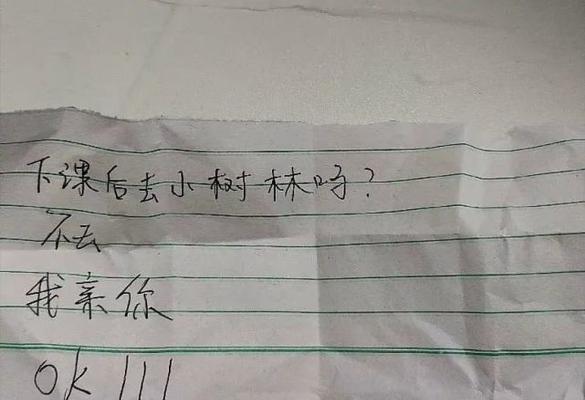 下课后去小树林吗?
不去
我亲你
OK!!!